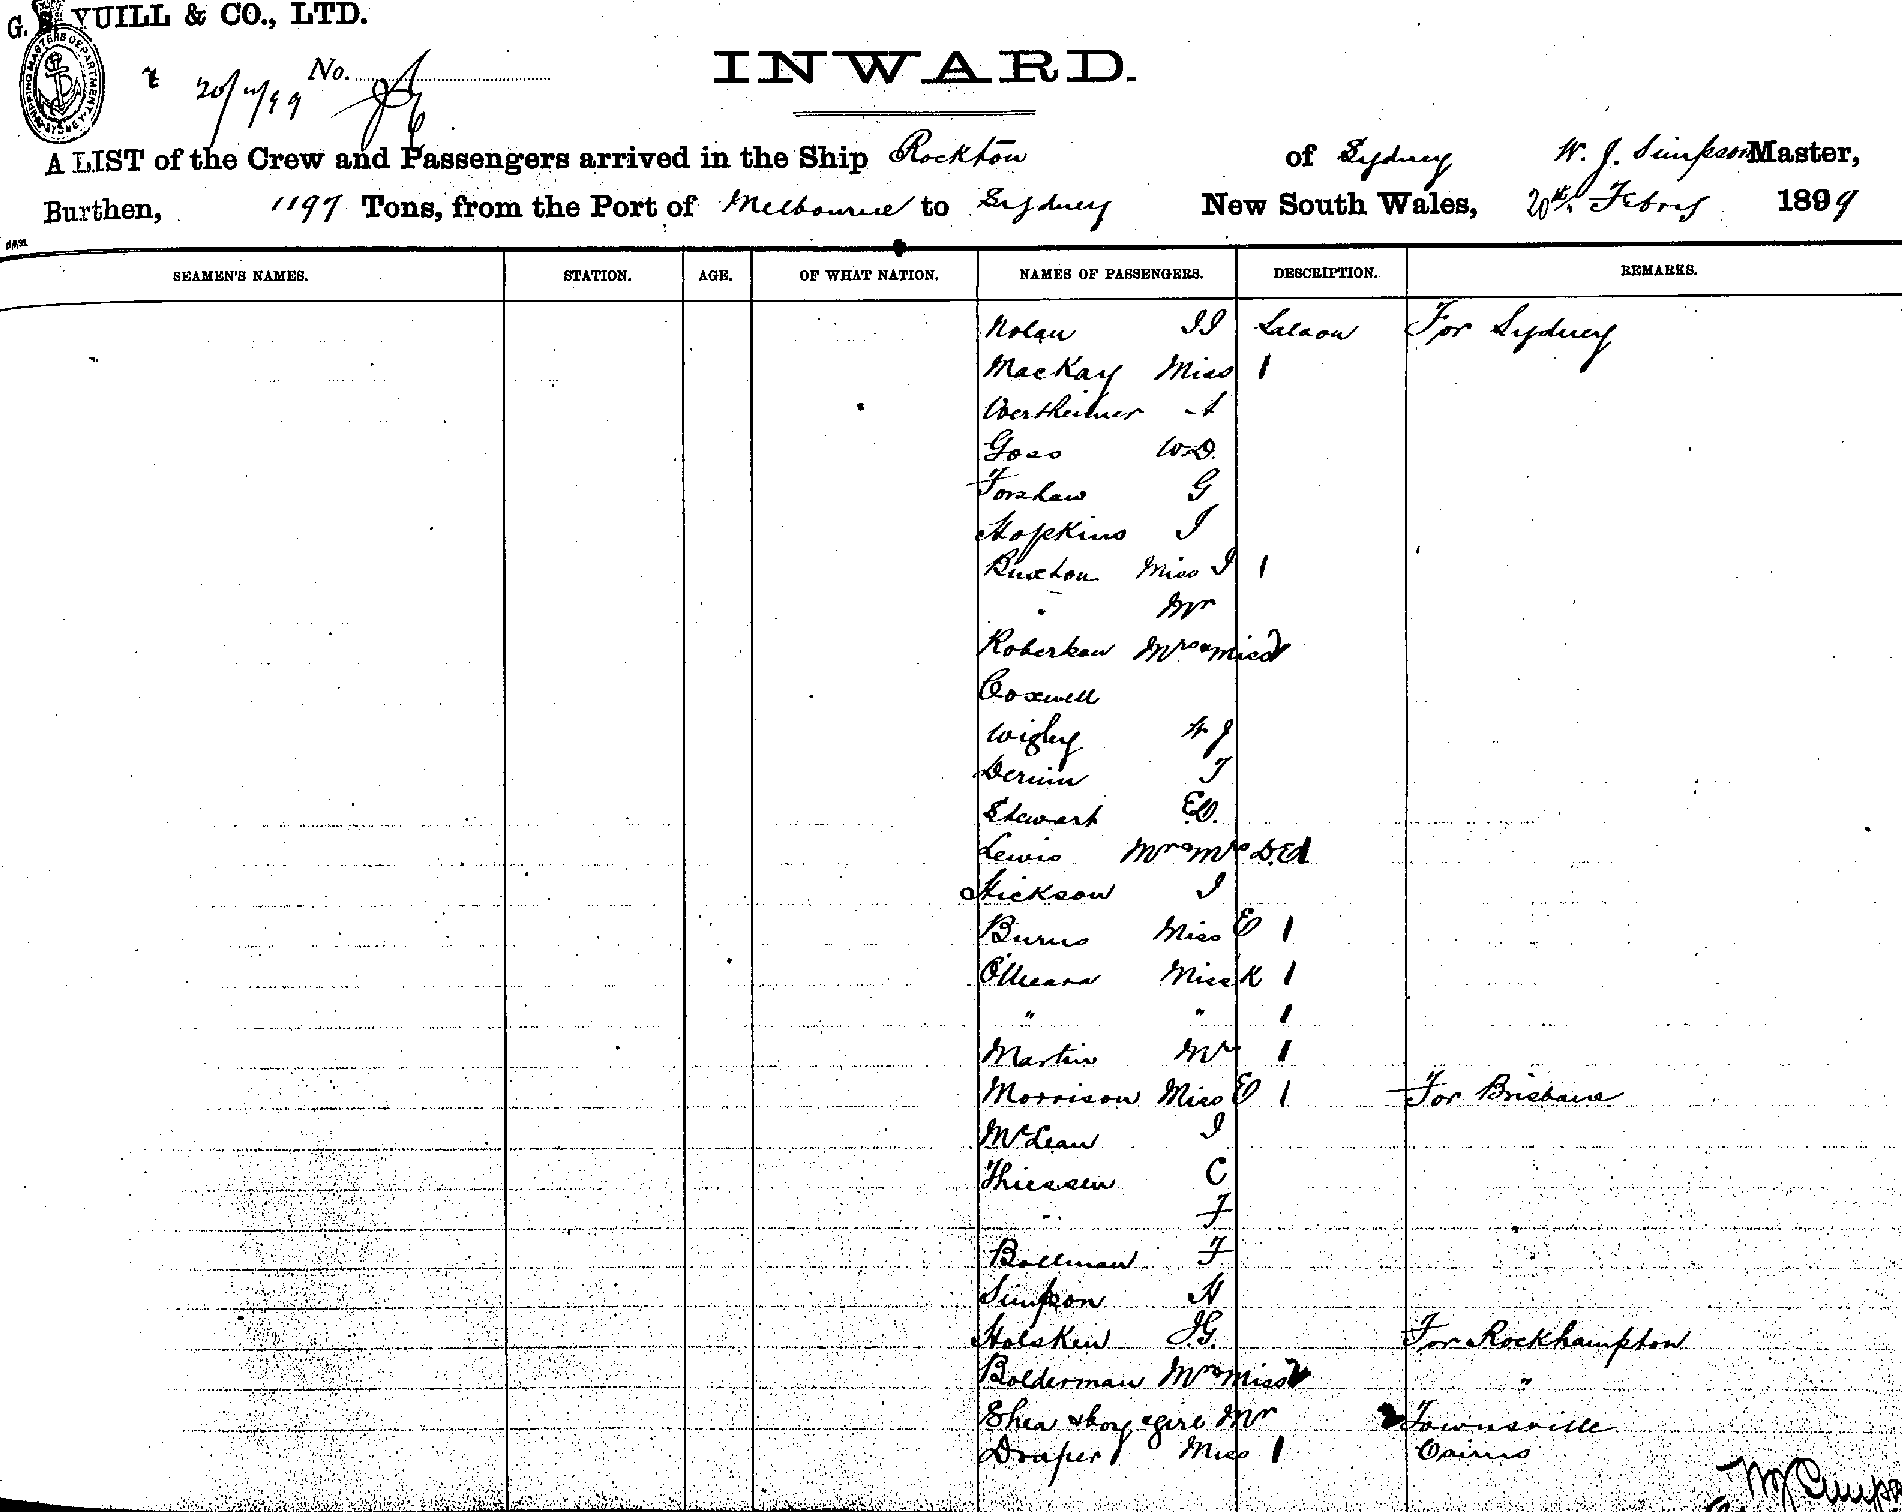 G. S. YUILL & CO., LTD.
INWARD.
20/2/99 No.
A LIST of the Crew and Passengers arrived in the Ship Rockton of Sydney W. J. Simpson Master,
Burthen, 1197 Tons, from the Port of Melbourne to Sydney New South Wales, 20th Febry 1899
SEAMEN'S NAMES. STATION. AGE. OF WHAT NATION. NAMES OF PASSENGERS. DESCRIPTION. REMARKS.
Nolan JJ Saloon For Sydney
MacKay Miss 1
Wertheimer A
Goss W.D.
Forshaw G
Hopkins J
Buxton Miss J 1
" Mr
Robertson Mrs & Miss 2
Coxwell
Wigley H J
Dernin T
Stewart E.W.
Lewis Mr & Mrs D.E. 1
Hickson J
Burns Miss E 1
O'Meara Miss K 1
" " 1
Martin Mrs 1
Morrison Miss E 1 For Brisbane
McLean J
Thiessen C
" F
Bollman F "
Simpson H "
Holsken J.G. For Rockhampton
Bolderman Mrs & Miss 2 "
Shea & boy & girl Mr 2 Townsville
Draper Miss 1 Cairns